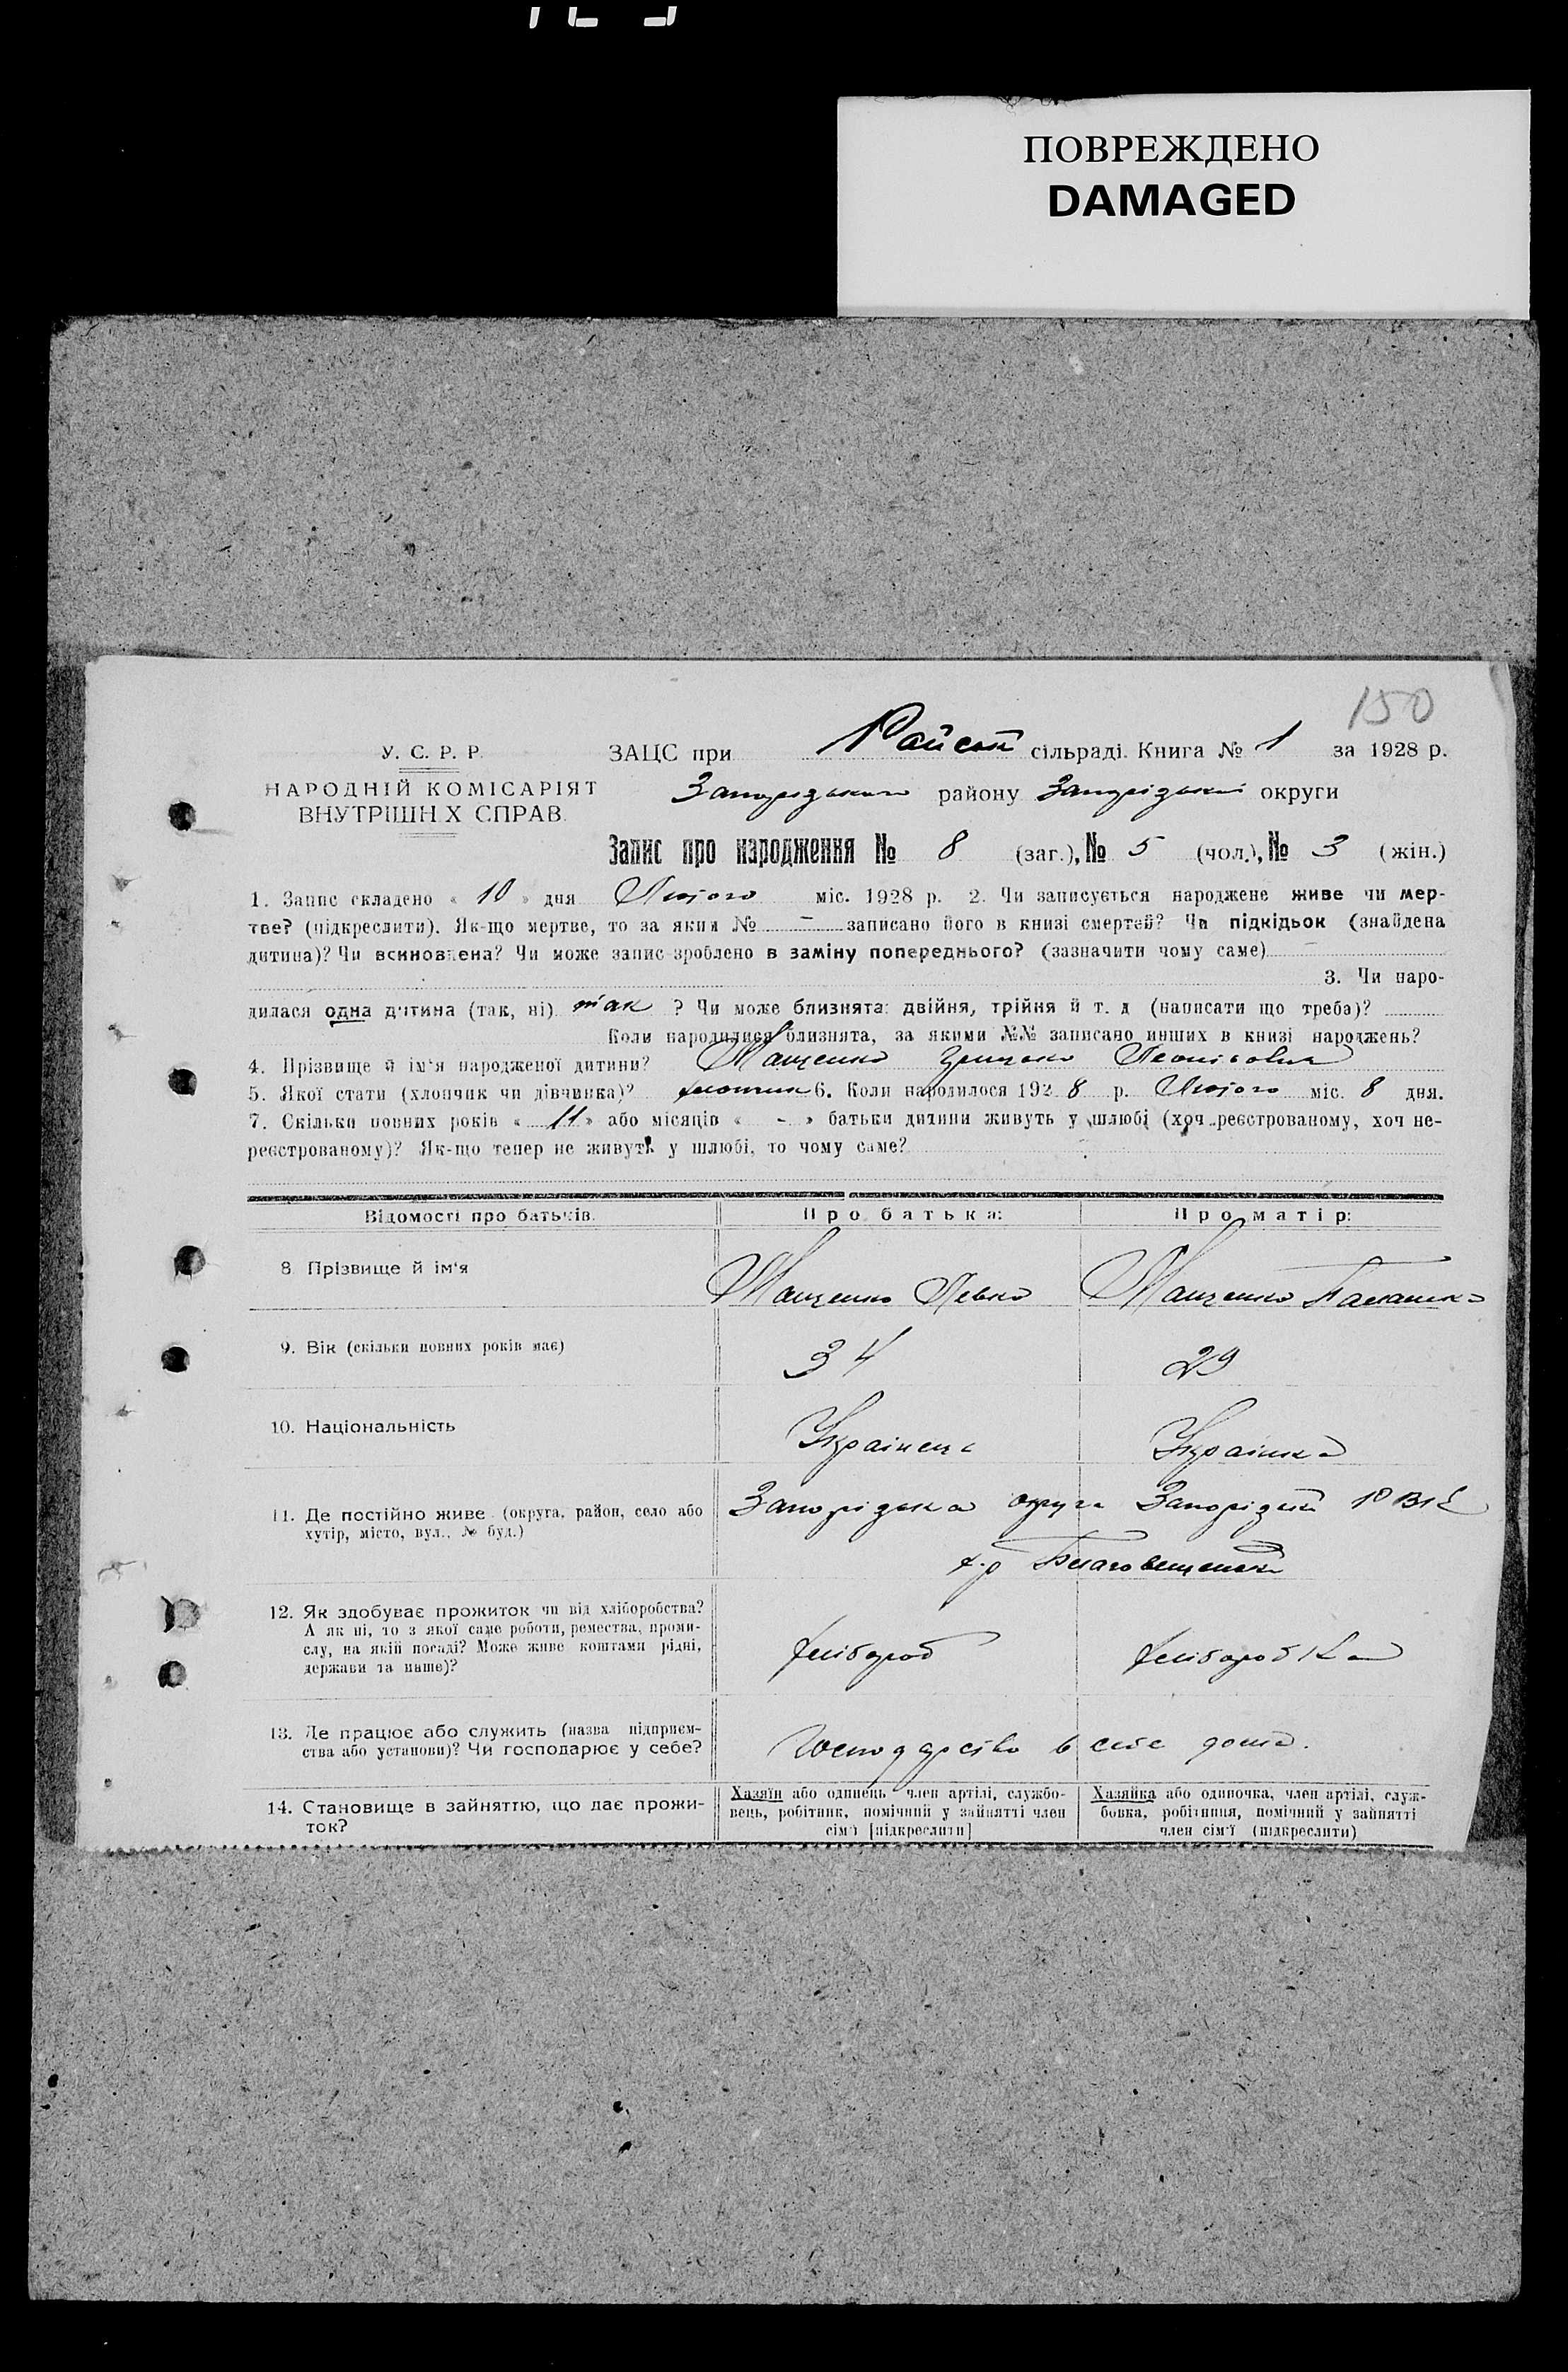 ПОВРЕЖДЕНО
DAMAGED
150
У. С. Р. Р.
НАРОДНІЙ КОМІСАРІЯТ
ВНУТРІШНІХ СПРАВ
ЗАЦС при Райській сільраді. Книга № 1 за 1928 р.
Запорізького району Запорізької округи
Запис про народження № 8 (заг.), № 5 (чол.), № 3 (жін.)
1. Запис складено « 10 » дня Лютого міс. 1928 р. 2. Чи записується народжене живе чи мер-
тве? (підкреслити). Як-що мертве, то за яким № – записано його в книзі смертей? Чи підкідьок (знайдена
дитина)? Чи всиновлена? Чи може запис зроблено в заміну попереднього? (зазначити чому саме)
3. Чи наро-
дилася одна дитина (так, ні) так ? Чи може близнята: двійня, трійня й т. д (написати що треба)?
Коли народилися близнята, за якими №№ записано инших в книзі народжень?
4. Прізвище й ім'я народженої дитини? Мащенко Грицько
5. Якої стати (хлопчик чи дівчинка)? хлопчик 6. Коли народилося 1928 р. Лютого міс. 8 дня.
7. Скільки повних років « 11 » або місяців « - » батьки дитини живуть у шлюбі (хоч реєстрованому, хоч не-
реєстрованому)? Як-що тепер не живуть у шлюбі, то чому саме?
Відомості про батьків. Про батька: Про матір:
8. Прізвище й ім'я Мащенко Левко Мащенко
9. Вік (скільки повних років має) 34 29
10. Національність Українець Українка
11. Де постійно живе (округа, район, село або
хутір, місто, вул., № буд.)
Запорізька округа Запорізький РВК
х-р
12. Як здобуває прожиток чи від хліборобства?
А як ні, то з якої саме роботи, ремества, проми-
слу, на якій посаді? Може живе коштами рідні,
держави та инше)?
хлібороб хліборобка
13. Де працює або служить (назва підприєм-
ства або установи)? Чи господарює у себе?
Господарство в себе дома.
14. Становище в зайняттю, що дає прожи-
ток?
Хазяїн або одинець член артілі, службо-
вець, робітник, помічний у зайнятті член
сім'ї [підкреслити]
Хазяйка або одиночка, член артілі, служ-
бовка, робітниця, помічний у зайнятті
член сім'ї (підкреслити)